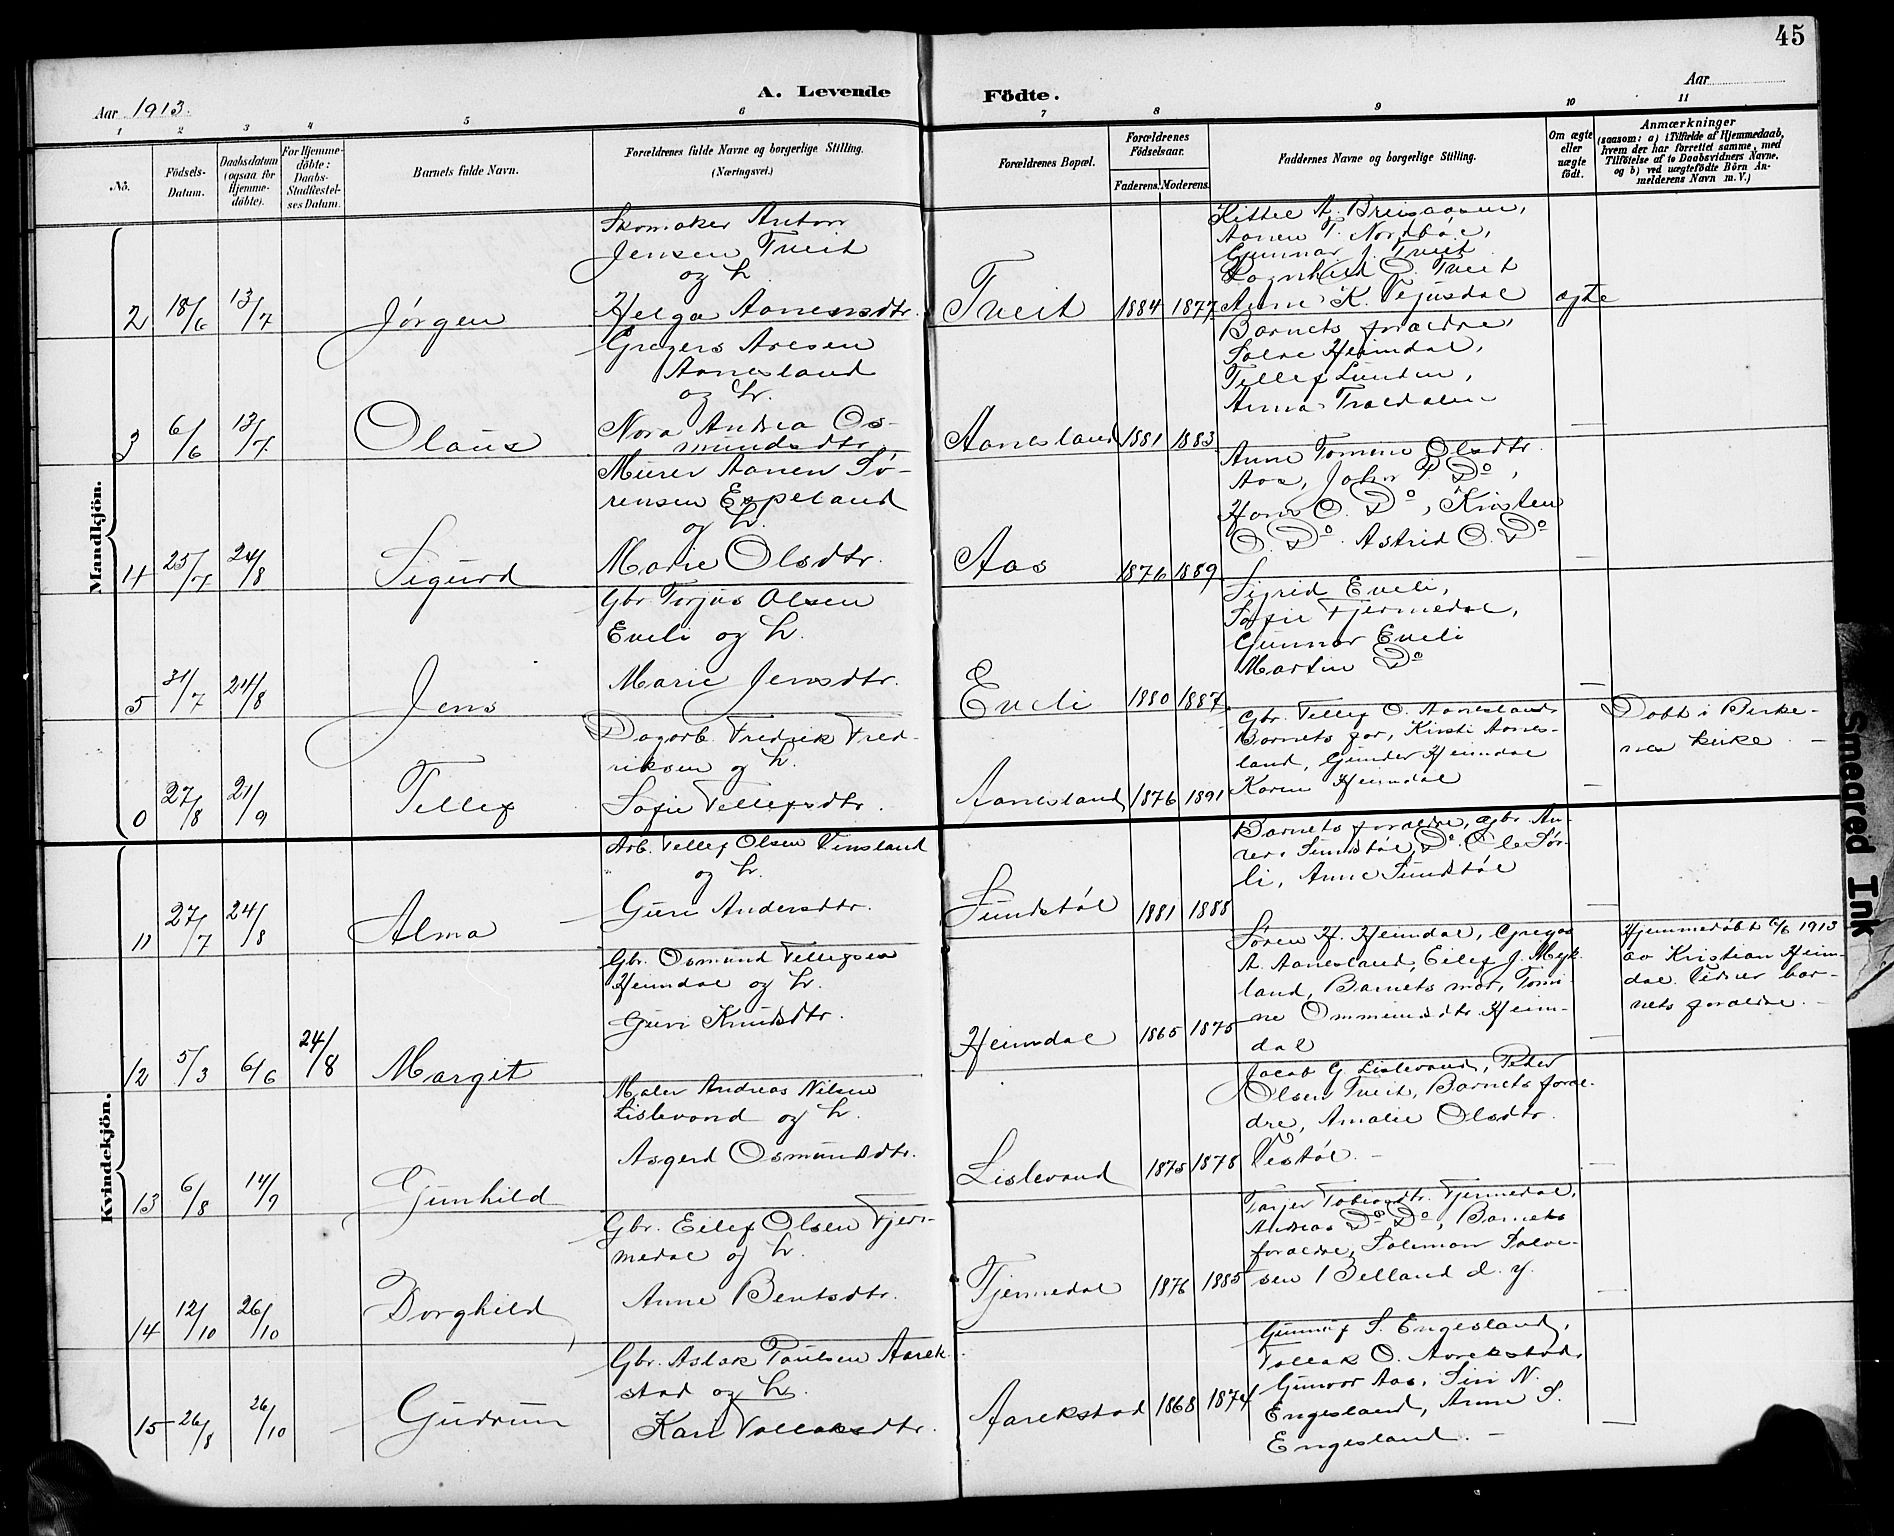 45
Aar 1913.
A. Levende Födte.
Aar
1 2 3 4 5 6 7 8 9 10 11
No.
Födsels-
Datum.
Daabsdatum
(ogsaa for
Hjemme-
döbte).
For Hjemme-
döbte:
Daabs-
Stadfæstel-
ses Datum.
Barnets fulde Navn.
Forældrenes fulde Navne og borgerlige Stilling.
(Næringsvei.)
Forældrenes Bopæl.
Forældrenes
Födselsaar.
Faderens. Moderens.
Faddernes Navne og borgerlige Stilling.
Om ægte
eller
uægte
födt.
Anmærkninger
(saasom: a) i Tilfælde af Hjemmedaab,
hvem der har forrettet samme, med
Tilföielse af to Daabsvidners Navne,
og b) ved uægtefödte Börn An-
melderens Navn m. V.)
Mandkjön.
2 18/6 13/7 Jørgen
Skomaker Anton
Jensen Tveit
og h.
Helga Aanensdtr.
Tveit 1884 1877
Kittel A. Breisaasen,
Aanen T. Nordbøe,
Gunnar J. Tveit
Ragnhild O. Tveit
Anne K. Tejusdal
ægte
3 6/6 13/7 Olaus
Gregers Aresen
Aanesland
og h.
Nora Andrea Os-
mundsdtr.
Aanesland 1881 1883
Barnets foraldre,
Salve Heimdal,
Tellef Lunden,
Anna Traldalen
—
4 25/7 24/8 Sigurd
Murer Aanen Sø-
rensen Espeland
og h.
Marie Olsdtr.
Aas 1876 1889
Anne Tomine Olsdtr.
Aas, John P. Do,
Hans O. Do, Kristen
O. Do. Astrid O. Do
—
5 31/7 24/8 Jens
Gbr. Terjus Olsen
Eveli og h.
Marie Jensdtr.
Eveli 1880 1887
Sigrid Eveli,
Sofie Fjermedal,
Gunnar Eveli
Martin Do
—
0 27/8 21/9 Tellef
Dagarb. Fredrik Fred-
riksen og h.
Sofie Tellefsdtr.
Aanesland 1876 1891
Gbr. Tellef O. Aanesland,
Barnets far, Kirsti Aanes-
land, Gunder Heimdal
Karen Heimdal
—
Døbt i Birke-
nes kirke —
Kvindekjön.
11 27/7 24/8 Alma —
Arb. Tellef Olsen Vensland
og h.
Guri Andersdtr.
Sundstøl 1881 1888
Barnets foraldre, gbr. An-
ders Sundstøl, Do. Ole Sør-
li, Anne Sundstøl
12 5/3 6/6 24/8 Margit
Gbr. Osmund Tellefsen
Heimdal og h.
Guri Knudsdtr.
Heimdal 1865 1875
Søren H. Heimdal, Gregers
A. Aanesland, Eilef J. Myk-
land, Barnets mor, Tomi-
ne Ommundsdtr. Heim-
dal
—
Hjemmedøbt 6/6 1913
av Kristian Heim-
dal. Vidner bar-
nets foraldre. —
13 6/8 14/9 Gunhild
Maler Andreas Nilsen
Lislevand og h.
Asgerd Osmundsdtr.
Lislevand 1875 1878
Jacob G. Lislevand, Peder
Olsen Tveit, Barnets foral-
dre, Amalie Olsdtr.
Vestøl. —
—
14 12/10 26/10 Borghild
Gbr. Eilef Olsen Fjer-
medal og h.
Anne Bentsdtr.
Fjermedal 1876 1885
Tarjer Tobiasdtr. Fjermedal,
Andreas Do Do, Barnets
foraldre, Salomon Salve-
sen Belland d. y.
—
15 26/8 26/10 Gudrun
Gbr. Aslak Paulsen Aarek-
stad og h.
Kari Tollaksdtr.
Aarekstad 1868 1874
Gunnuf S. Engesland,
Tollak O. Aarekstad,
Gunvor Aas, Siri N.
Engesland, Anne S.
Engesland. —
—
Smeared Ink